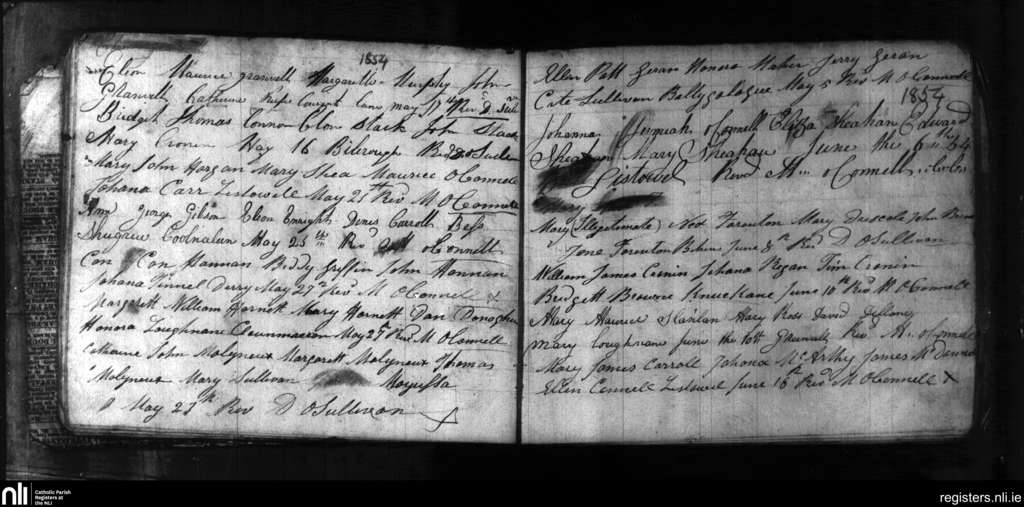 1854
Ellen Maurice granvell Margarett Murphy John
Granvell Catherine Convent lane may 17th Revd D
Bridgit Thomas Connor Ellen Black John Black
Mary Cronin May 16 Billerough Revd D o Sullivan
Mary John Horgan Mary Shea Maurice O Connell
Johana Carr Listowell May 21st Rev M O Connell
Ann George Gibson Ellen Enright Denis Carroll Bess
Coolnalun May 25th Rev M o Connell
Con Con Hannan Biddy Griffin John Hannan
Johana Derry May 27th Revd M O Connell X
Margarett William Harnett Mary Harnett Dan Donoghue
Honora Loughnane May 27th Revd M O Connell
Catharine John Molyneux Margarett Molyneux Thomas
Molyneux Mary Sullivan
May 29th Rev D O Sullivan
Ellen Patt Geran Honora Maher Jerry Geran
Cate Sullivan Ballygologue May Rev M O Connell
1854
Johanna Jeremiah o Connell Eliza Sheahan Edward
Sheahan Mary Sheahan June the 6th 54
Listowel Revd M o Connell
Mary (Illegitimate) Ned Mary Driscole John
Jone June 8th Revd D O Sullivan
William James Cronin Johana Regan Tim Cronin
Bridgett Browne Knuckane June 10th Revd M O Connell
Mary Maurice Scanlan Mary Ross David
Mary Loughnane June the 10th Rev M. o Connell
Mary James Carroll Johana McArthy James
Ellen Connell Listowel June 16th Revd M O Connell X
nli
Catholic Parish
Registers at
the NLI
registers.nli.ie